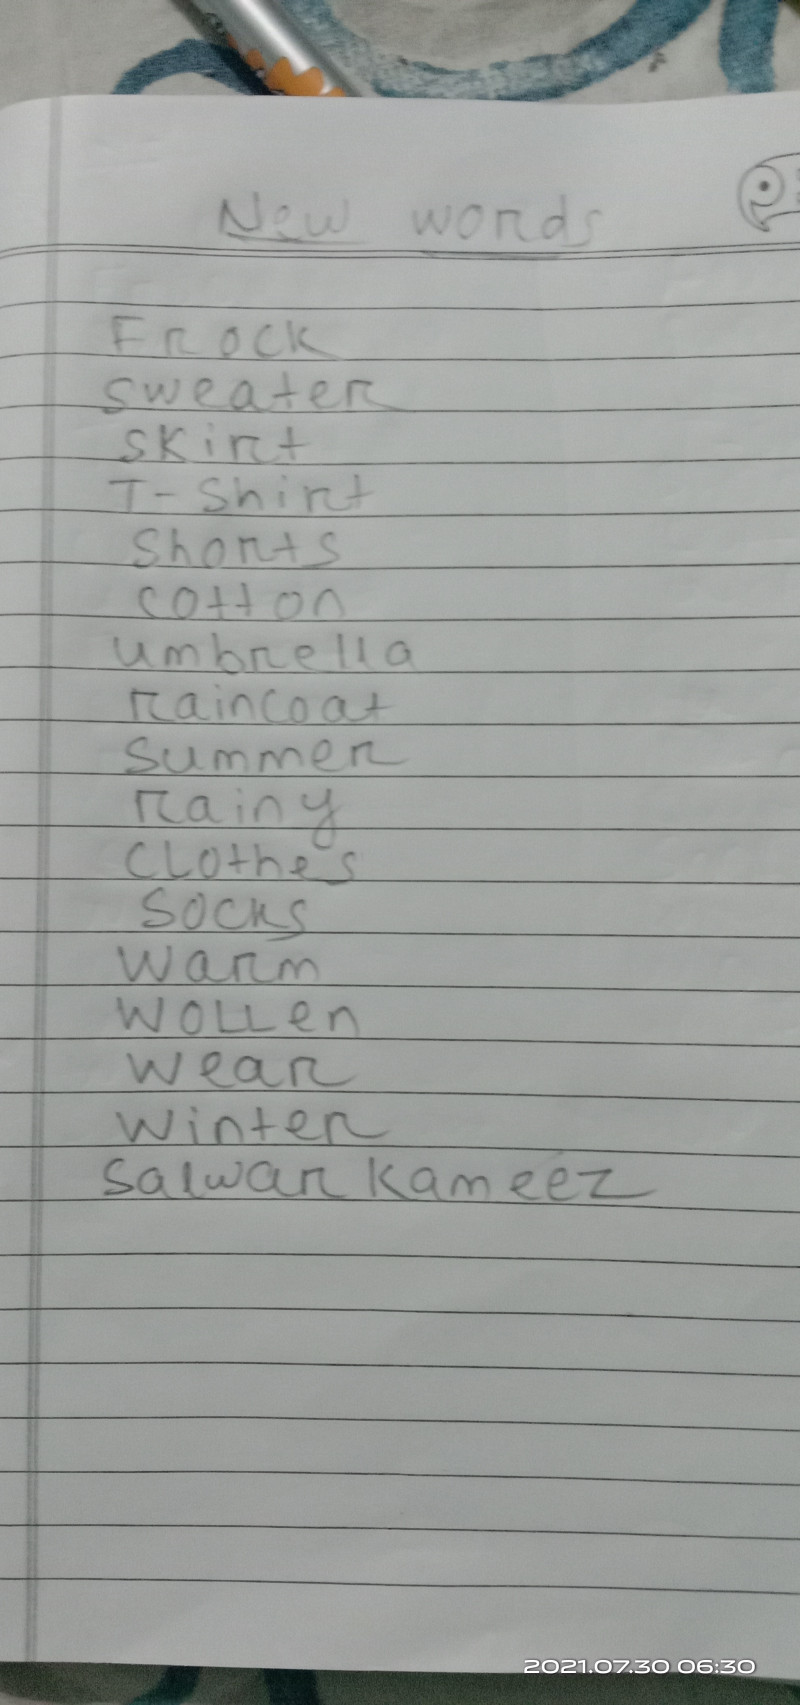 New words
Frock
Sweater
Skirt
T-Shirt
Shorts
cotton
umbrella
raincoat
Summer
rainy
CLothes
Socks
Warm
WOLLen
Wear
Winter
Salwar Kameez
2021.07.30 06:30